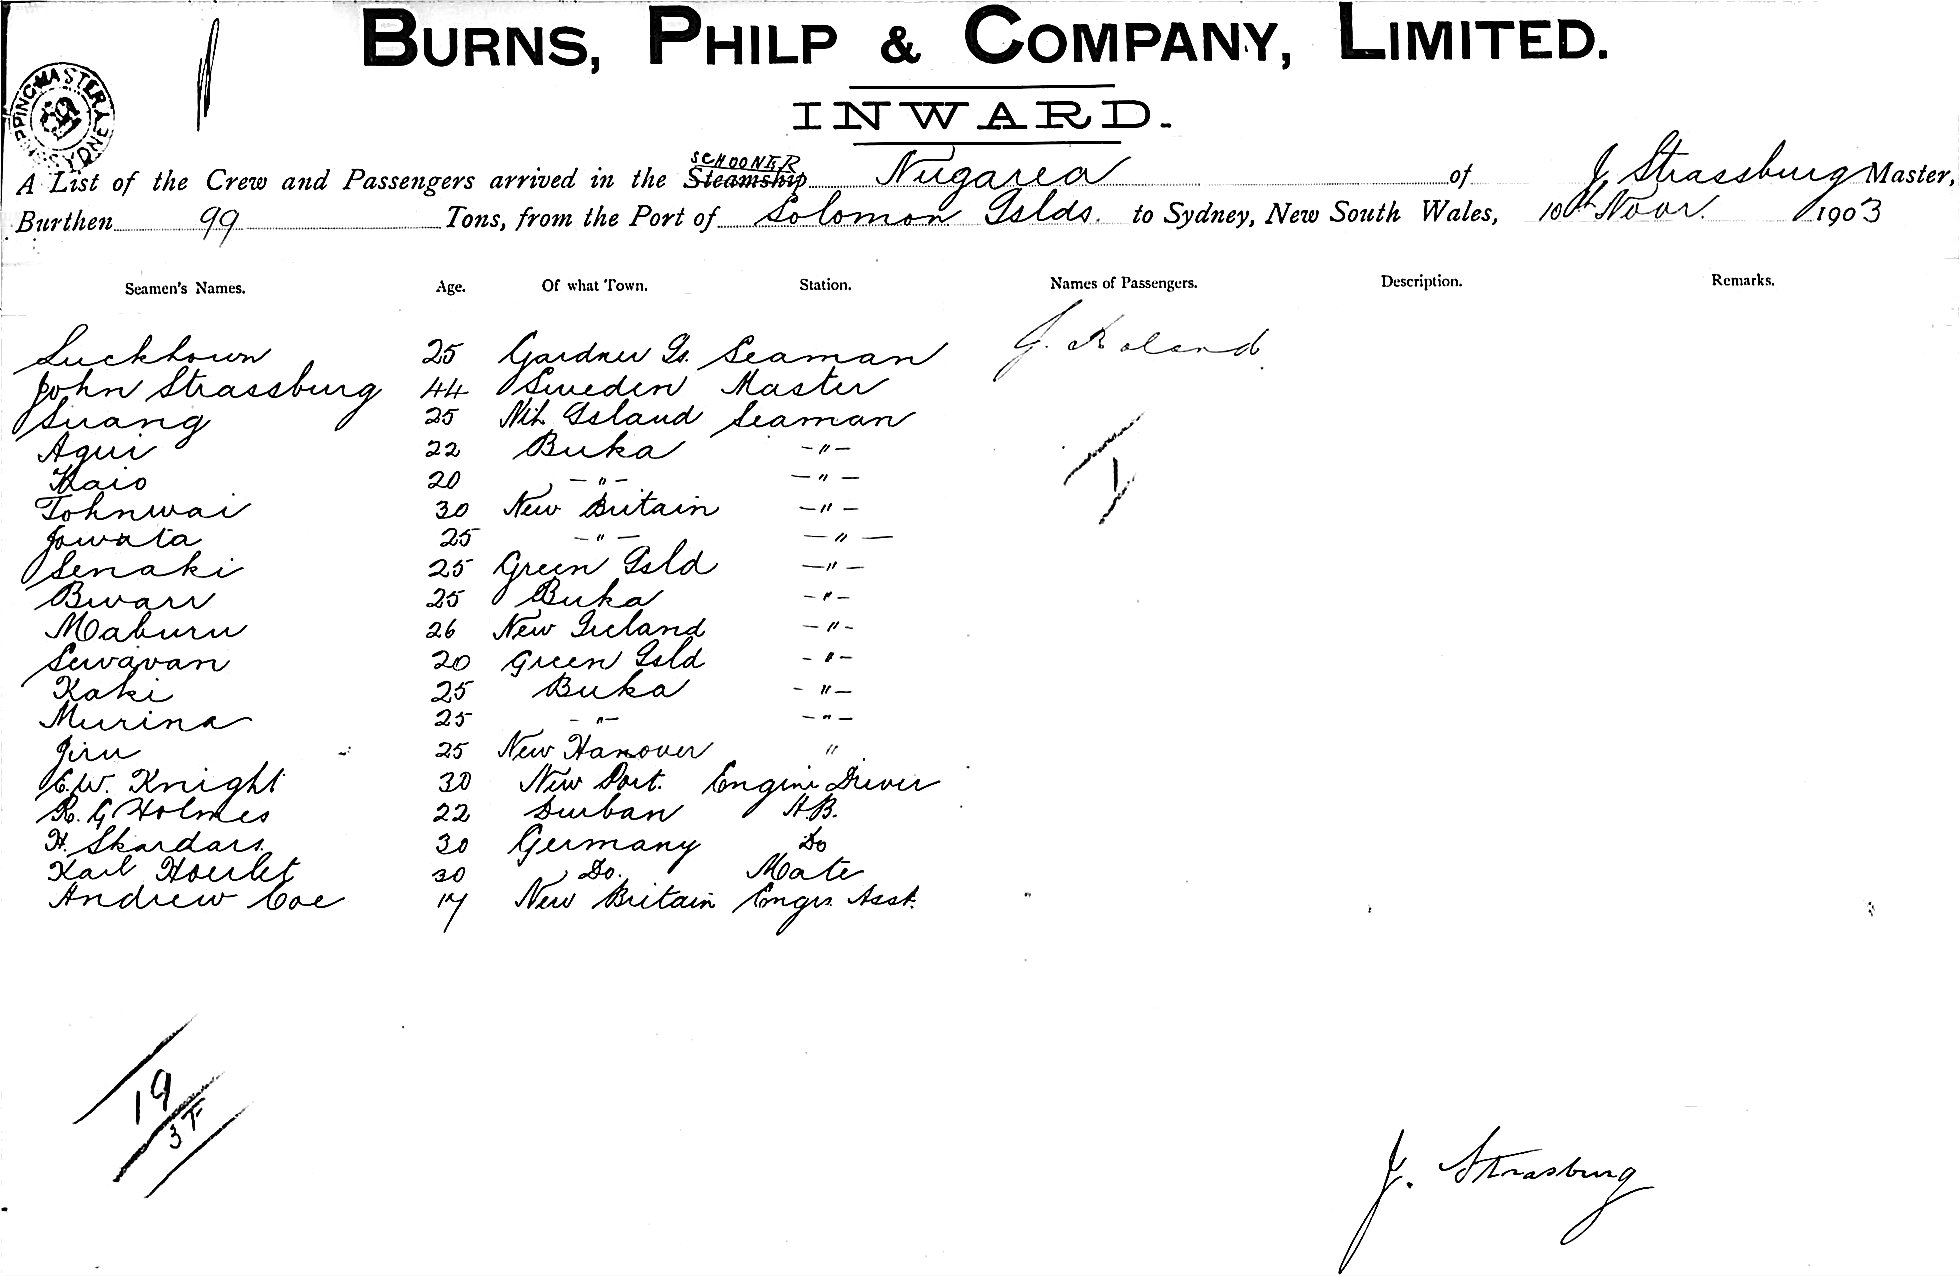 BURNS, PHILP & COMPANY, LIMITED.
INWARD.
SHIPPING MASTER SYDNEY
SCHOONER
A List of the Crew and Passengers arrived in the Steamship Nugarea of J Strassburg Master,
Burthen 99 Tons, from the Port of Solomon Islds. to Sydney, New South Wales, 10th Novr. 1903
Seamen's Names. Age. Of what Town. Station. Names of Passengers. Description. Remarks.
Suckhown 25 Gardner Is. Seaman J. Roland
John Strassburg 44 Sweden Master
Suang 25 Island Seaman
Aqui 22 Buka -"-
Kaio 20 -"- -"-
Tohnwai 30 New Britain -"-
Jowata 25 -"- -"-
Senaki 25 Green Isld -"-
Bwarr 25 Buka -"-
Maburu 26 New Ireland -"-
Sewavan 20 Green Isld -"-
Kaki 25 Buka -"-
Murina 25 -"- -"-
Jiru 25 New Hanover "
E.W. Knight 30 New Port. Engine Driver
R. G Holmes 22 Durban A.B.
H. Skardars 30 Germany Do
Karl 30 Do. Mate
Andrew Coe 17 New Britain Engrs Asst.
1
19
3F
J. Strasburg